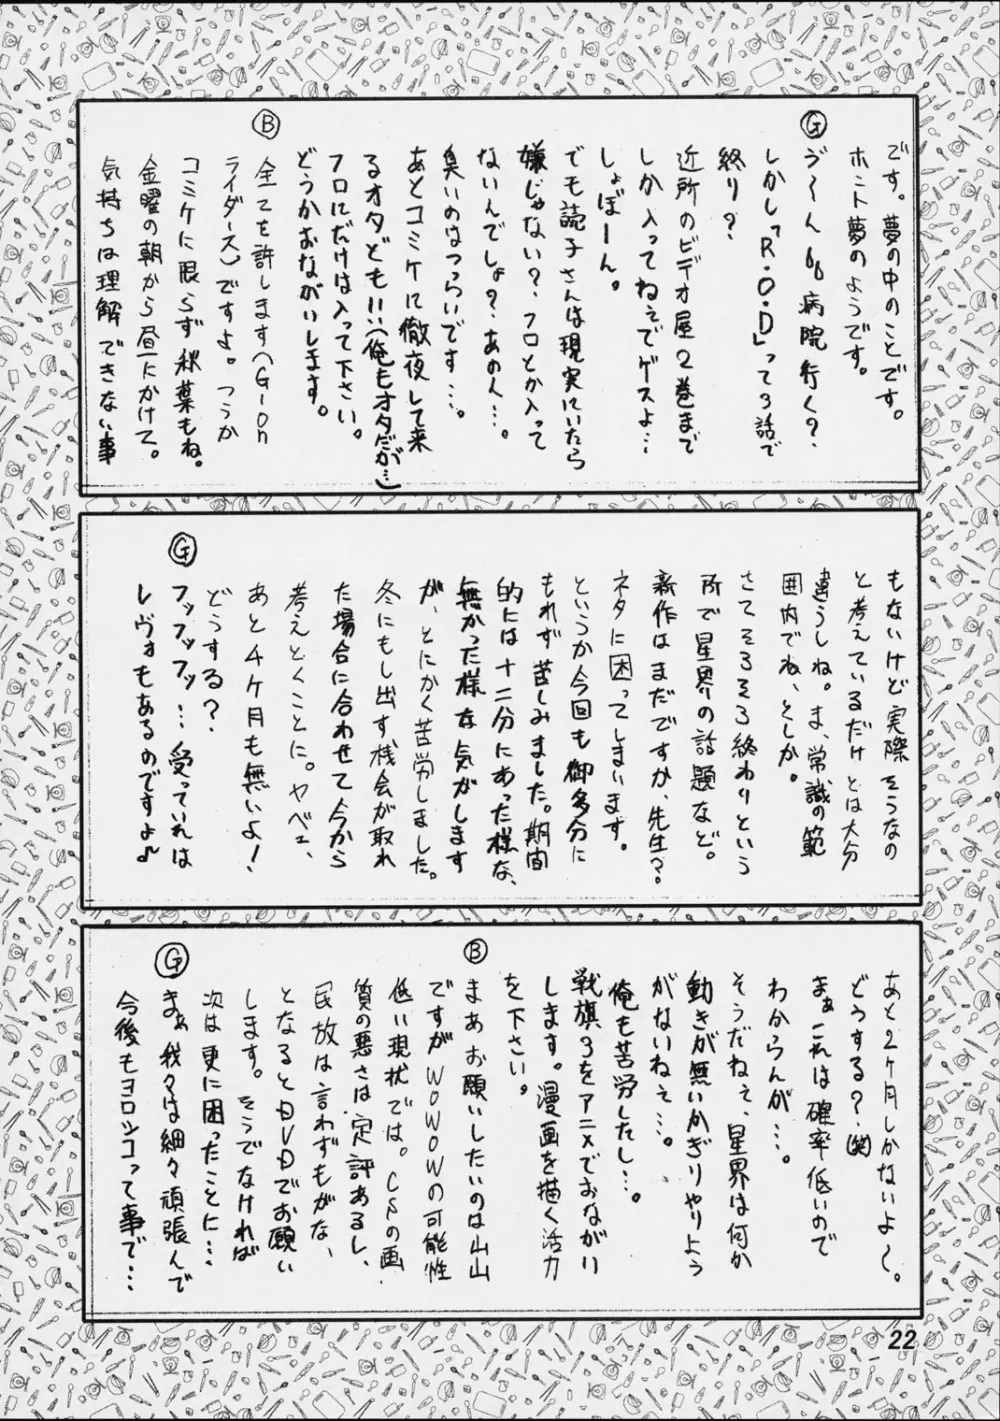 です。夢の中のことです。
ホント夢のようです。
Ⓖ
う〜ん、病院行く?
しかし「R・O・D」って3話で
終り?
近所のビデオ屋2巻まで
しか入ってねぇでゲスよ…
しょぼーん。
でも読子さんは現実にいたら
嫌じゃない?、フロとか入って
ないんでしょ?、あの人…。
臭いのはつらいです…。
あとコミケに徹夜して来
るオタども!!(俺もオタだが…)
フロにだけは入って下さい。
どうかおながいします。
Ⓑ
全てを許します(G-on
ライダース)ですよ。つうか
コミケに限らず秋葉もね。
金曜の朝から昼にかけて。
気持ちは理解できない事
もないけど実際そうなの
と考えているだけとは大分
違うしね。ま、常識の範
囲内でね、としか。
さてそろそろ終わりという
所で星界の話題など。
新作はまだですか、先生?
ネタに困ってしまいます。
というか今回も御多分に
もれず苦しみました。期間
的には十二分にあった様な、
無かった様な気がします
が、とにかく苦労しました。
冬にもし出す機会が取れ
た場合に合わせて今から
考えとくことに。ヤベェ、
あと4ケ月も無いよ!
どうする?
Ⓖ
フッフッフッ…受っていれは
レヴォもあるのですよ♪
あと2ケ月しかないよ〜。
どうする?(笑)
まぁこれは確率低いので
わからんが…。
そうだねぇ、星界は何か
動きが無いかぎりやりよう
がないねぇ…。
俺も苦労したし…。
戦旗3をアニメでおながい
します。漫画を描く活力
を下さい。
Ⓑ
まあお願いしたいのは山山
ですがWOWOWの可能性
低い現状では。CSの画
質の悪さは定評あるし、
民放は言わずもがな、
となるとDVDでお願い
します。そうでなければ
次は更に困ったことに…
Ⓖ
まぁ我々は細々頑張んで
今後もヨロシコって事で…
22